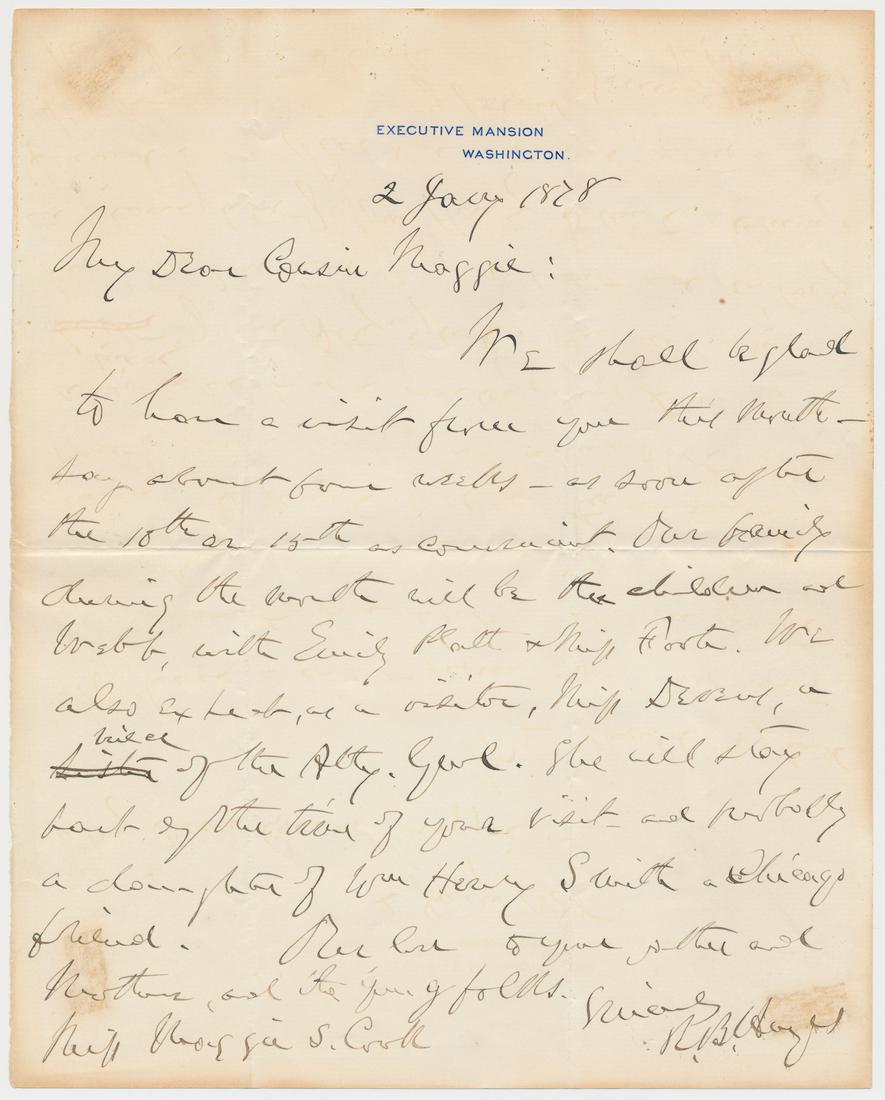 EXECUTIVE MANSION
WASHINGTON.
2 Jany 1878
My Dear Cousin Maggie:
We shall be glad
to have a visit from you this month —
say about four weeks — as soon after
the 10th or 15th as convenient. Our family
during the month will be the children and
Webb, with Emily Platt & Miss Foote. We
also expect, as a visitor, Miss Devens, a
niece
sister of the Atty. Genl. She will stay
part of the time of your visit — and probably
a daughter of Wm Henry Smith a Chicago
friend. Our love to your father and
Mother, and the young folks.
Sincerely
R. B. Hayes
Miss Maggie S. Cook